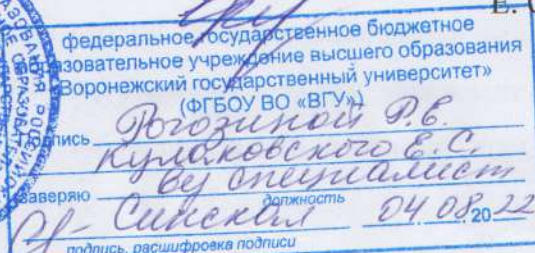 Е.
федеральное государственное бюджетное
образовательное учреждение высшего образования
«Воронежский государственный университет»
(ФГБОУ ВО «ВГУ»)
подпись Рогозиной Р.Б.
Кулаковского Е.С.
специалист
заверяю должность
Синская 04 08 2022
подпись, расшифровка подписи